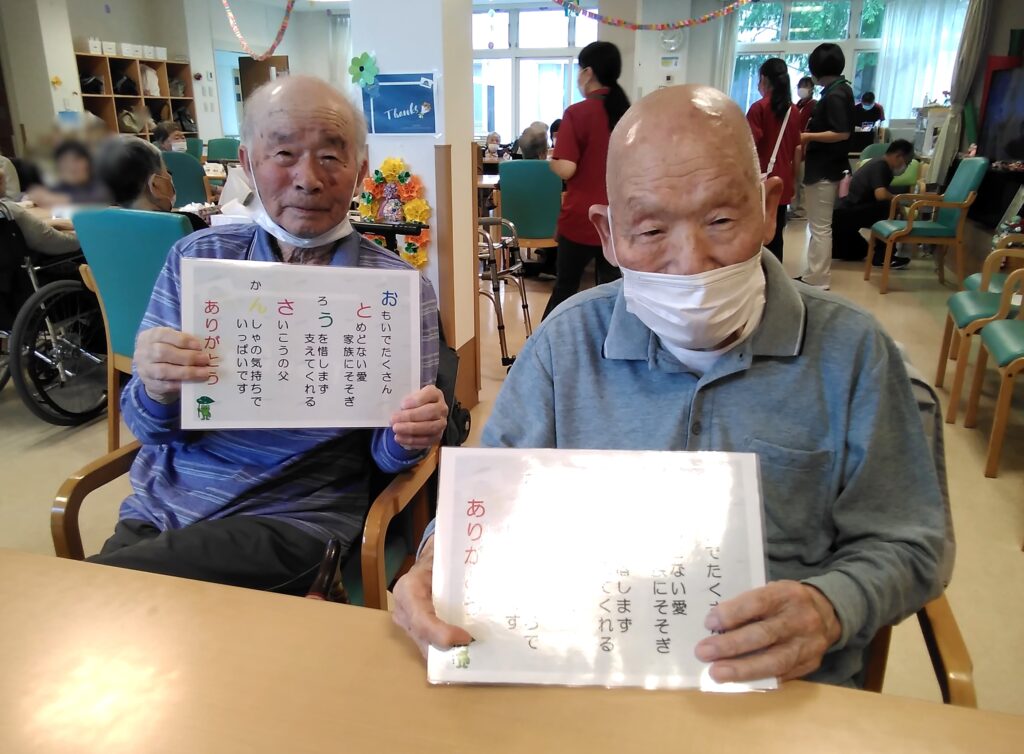 Thanks
おもいでたくさん
とめどない愛
家族にそそぎ
ろうを惜しまず
支えてくれる
さいこうの父
かんしゃの気持ちで
いっぱいです
ありがとう
でたく
ない愛
にそそぎ
しまず
てくれる
で
す
ありが